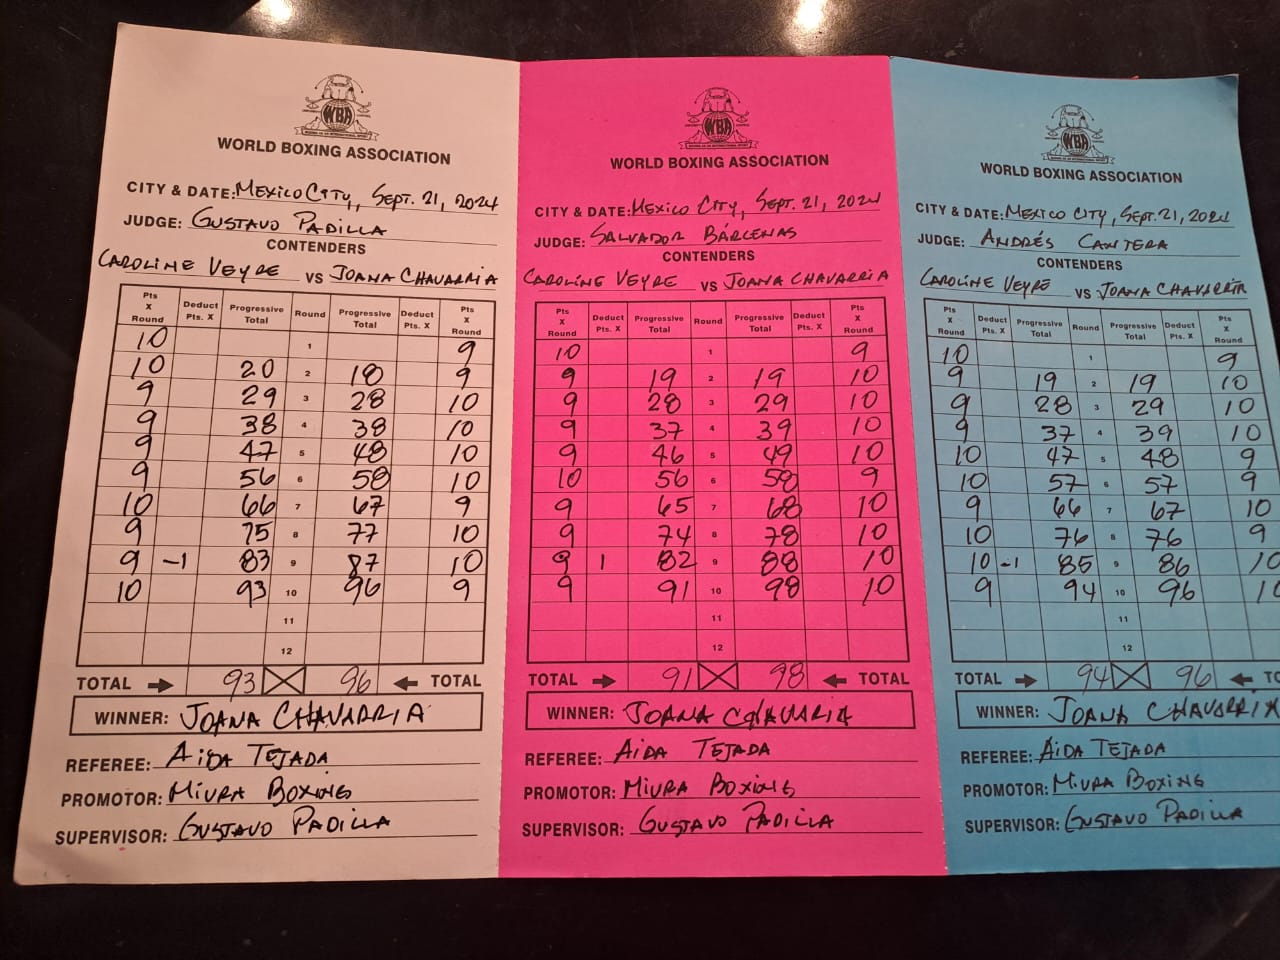 WBA
WORLD BOXING ASSOCIATION
CITY & DATE: MEXICO CITY, SEPT. 21, 2024
JUDGE: GUSTAVO PADILLA
CONTENDERS
CAROLINE VEYRE VS JOANA CHAVARRIA
Pts X Round Deduct Pts. X Progressive Total Round Progressive Total Deduct Pts. X Pts X Round
10 1 9
10 20 2 18 9
9 29 3 28 10
9 38 4 38 10
9 47 5 48 10
9 56 6 58 10
10 66 7 67 9
9 75 8 77 10
9 -1 83 9 87 10
10 93 10 96 9
11
12
TOTAL 93 96 TOTAL
WINNER: JOANA CHAVARRIA
REFEREE: AIDA TEJADA
PROMOTOR: MIURA BOXING
SUPERVISOR: GUSTAVO PADILLA
WBA
WORLD BOXING ASSOCIATION
CITY & DATE: MEXICO CITY, SEPT. 21, 2024
JUDGE: SALVADOR BÁRCENAS
CONTENDERS
CAROLINE VEYRE VS JOANA CHAVARRIA
Pts X Round Deduct Pts. X Progressive Total Round Progressive Total Deduct Pts. X Pts X Round
10 1 9
9 19 2 19 10
9 28 3 29 10
9 37 4 39 10
9 46 5 49 10
10 56 6 58 9
9 65 7 68 10
9 74 8 78 10
9 1 82 9 88 10
9 91 10 98 10
11
12
TOTAL 91 98 TOTAL
WINNER: JOANA CHAVARIA
REFEREE: AIDA TEJADA
PROMOTOR: MIURA BOXING
SUPERVISOR: GUSTAVO PADILLA
WBA
WORLD BOXING ASSOCIATION
CITY & DATE: MEXICO CITY, SEPT. 21, 2024
JUDGE: ANDRÉS CANTERA
CONTENDERS
CAROLINE VEYRE VS JOANA CHAVARRIA
Pts X Round Deduct Pts. X Progressive Total Round Progressive Total Deduct Pts. X Pts X Round
10 1 9
9 19 2 19 10
9 28 3 29 10
9 37 4 39 10
10 47 5 48 9
10 57 6 57 9
9 66 7 67 10
10 76 8 76 9
10 -1 85 9 86 10
9 94 10 96 10
11
12
TOTAL 94 96 TOTAL
WINNER: JOANA CHAVARRIA
REFEREE: AIDA TEJADA
PROMOTOR: MIURA BOXING
SUPERVISOR: GUSTAVO PADILLA